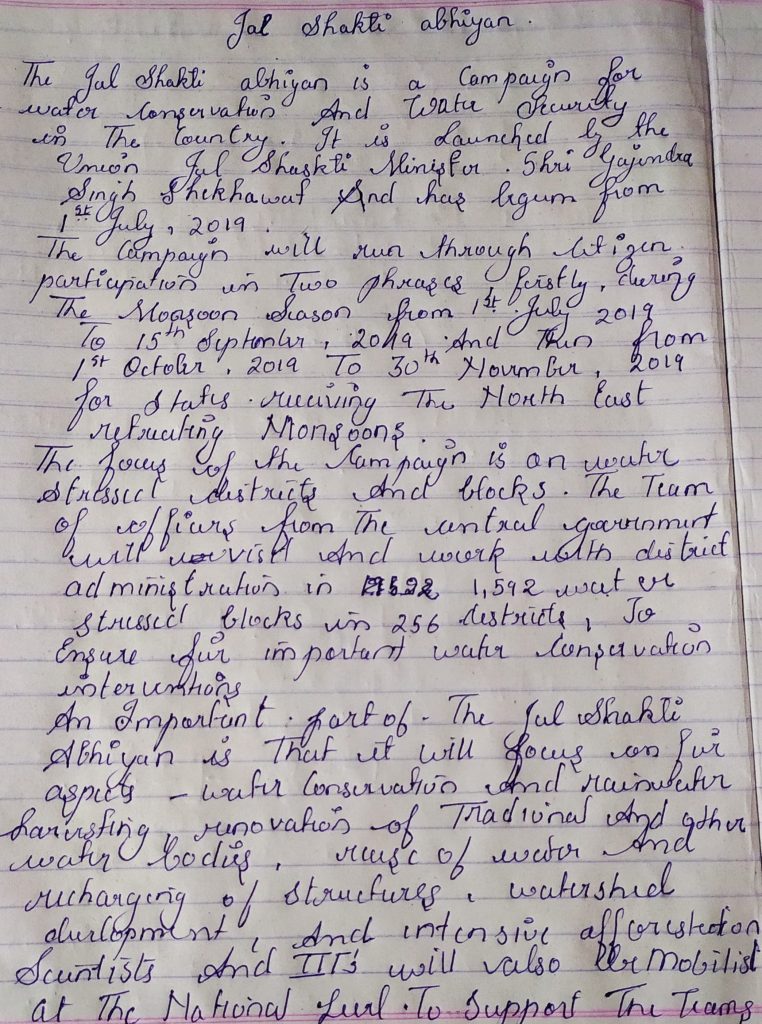 Jal Shakti abhiyan.
The Jal Shakti abhiyan is a Campaign for
water Conservation And Water Security
in The Country. It is Launched by the
Union Jal Shaskti Minister. Shri Gajendra
Singh Shekhawat And has begum from
1st July, 2019.
The Campaign will run through Citizen
participation in Two phrases, firstly, during
The Monsoon Season from 1st July 2019
To 15th September, 2019 And Then from
1st October, 2019 To 30th November, 2019
for States receiving The North East
retreating Monsoons.
The focus of the Campaign is on water
stressed districts And blocks. The Team
of officers from The central government
will visit And work with district
administration in 1,592 water
stressed blocks in 256 districts, To
Ensure fiir important water Conservation
interventions
An Important part of The Jal Shakti
Abhiyan is That it will focus on fiir
aspects - water Conservation And rainwater
harvesting, renovation of Tradional And other
water bodies, reuse of water And
recharging of structures, watershed
development, And intensive afforestation
Scientists And IITs will also be Mobilist
at The National Level To Support The Teams